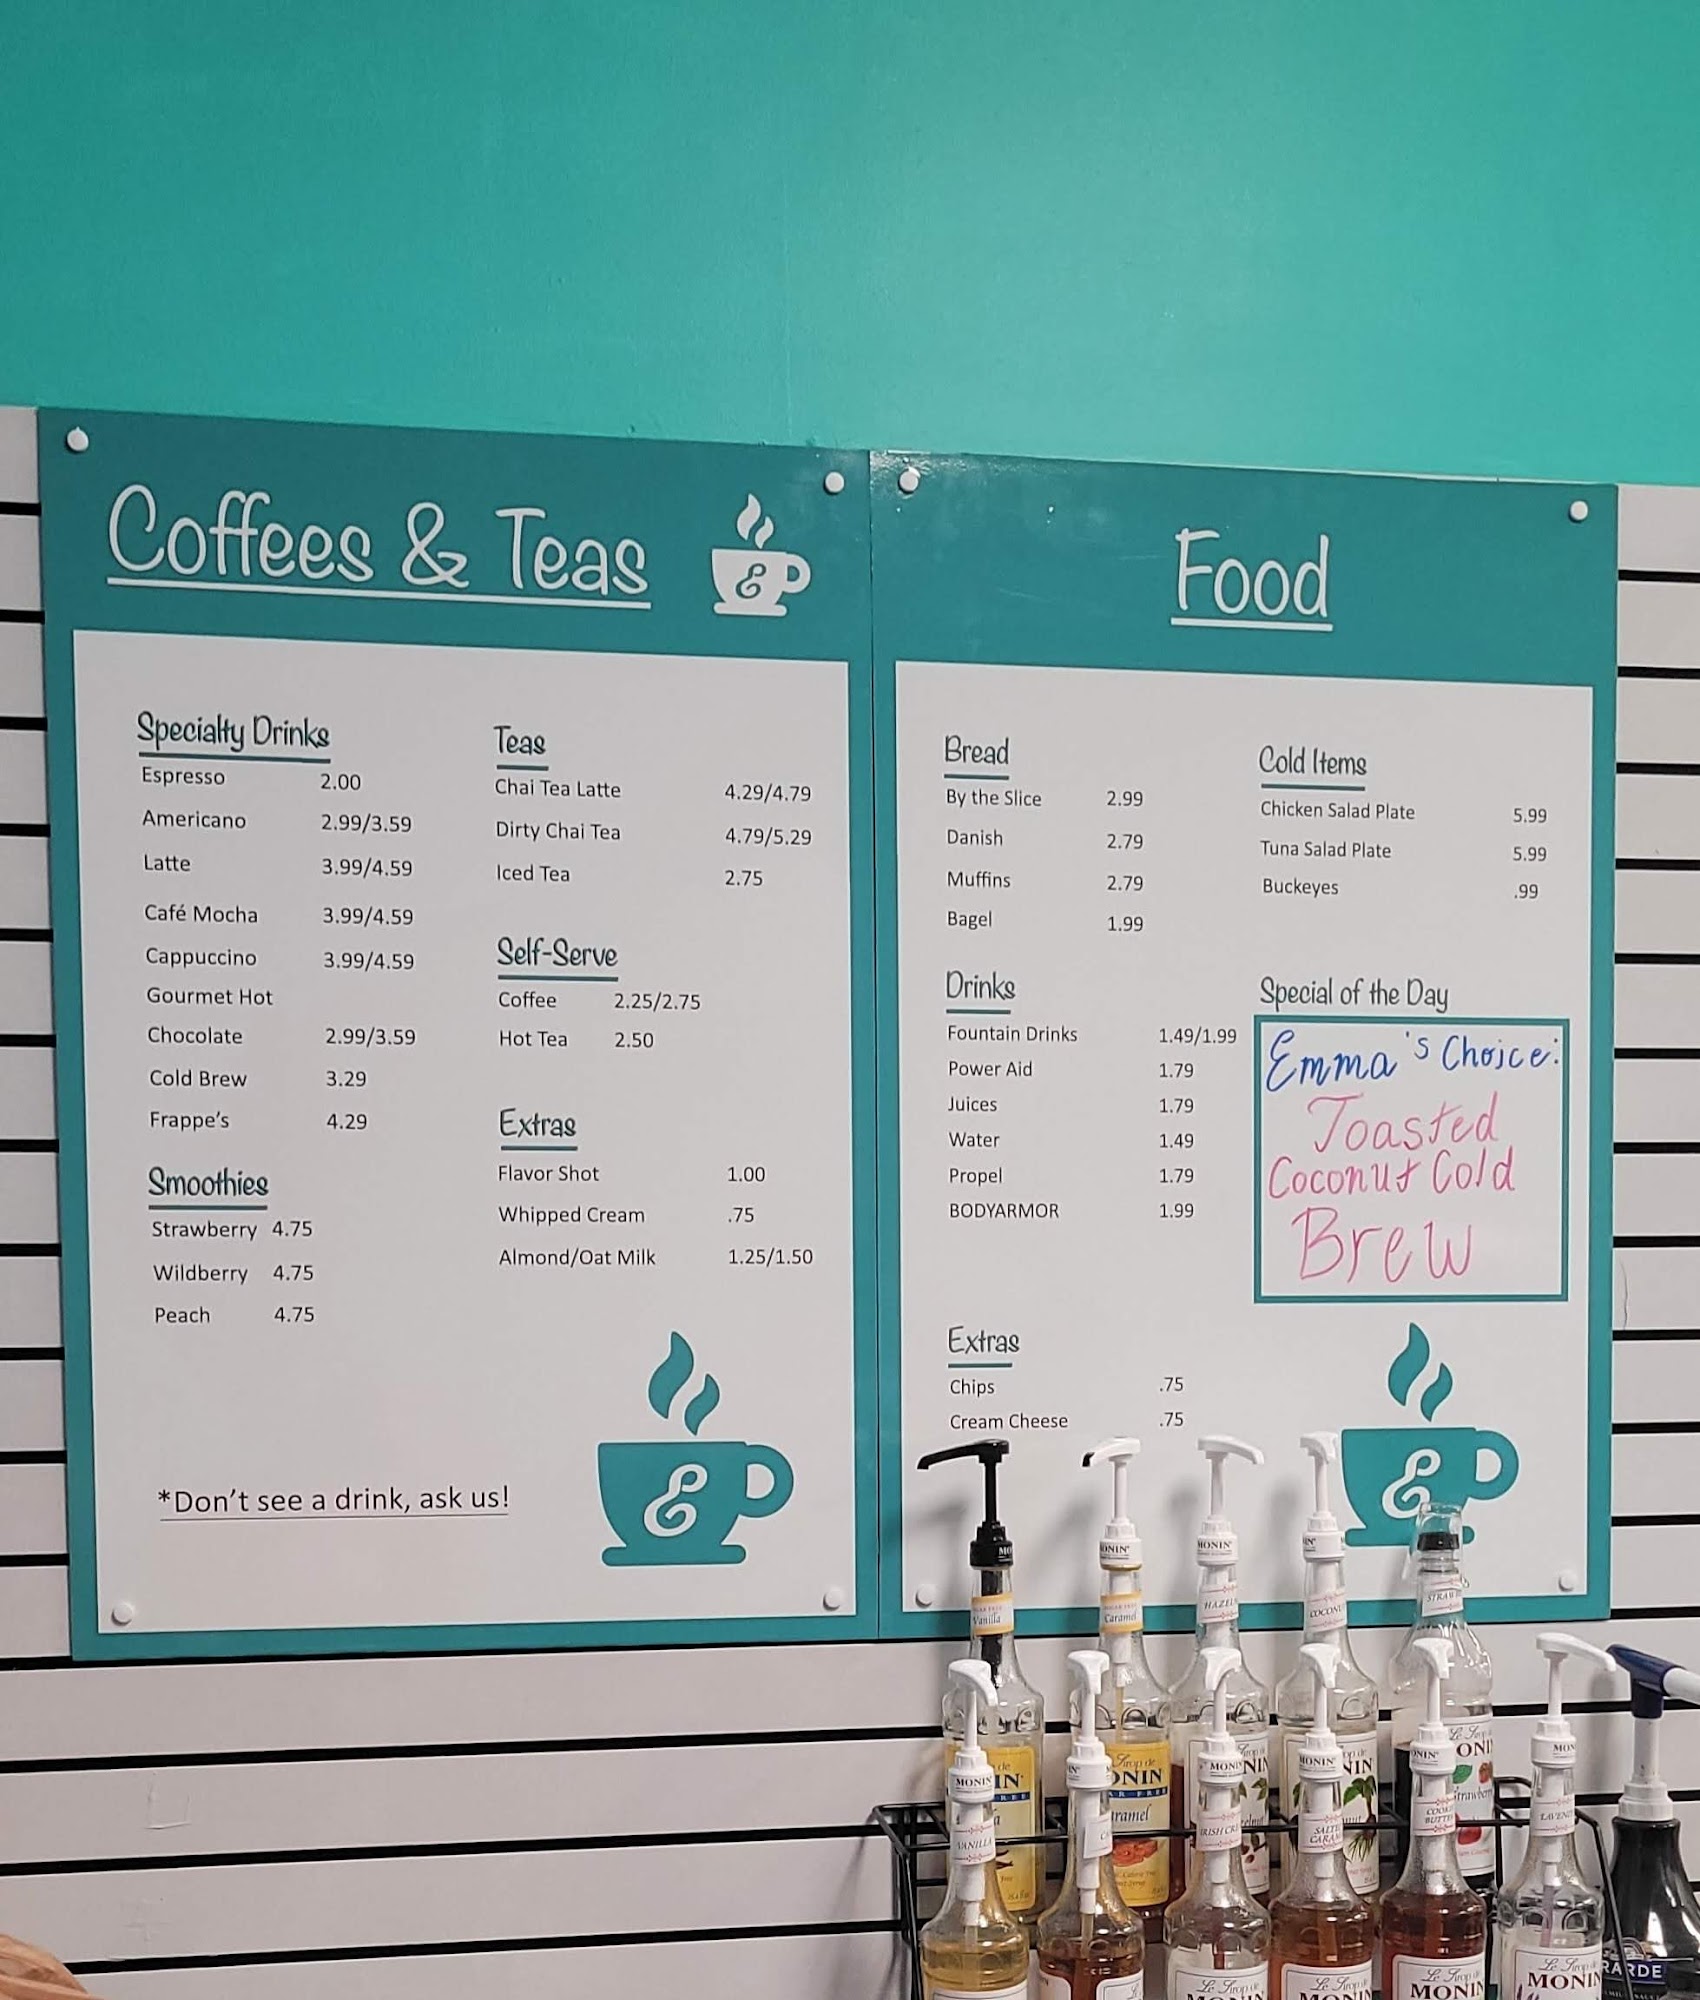 Coffees & Teas
&
Specialty Drinks
Espresso 2.00
Americano 2.99/3.59
Latte 3.99/4.59
Café Mocha 3.99/4.59
Cappuccino 3.99/4.59
Gourmet Hot
Chocolate 2.99/3.59
Cold Brew 3.29
Frappe's 4.29
Smoothies
Strawberry 4.75
Wildberry 4.75
Peach 4.75
Teas
Chai Tea Latte 4.29/4.79
Dirty Chai Tea 4.79/5.29
Iced Tea 2.75
Self-Serve
Coffee 2.25/2.75
Hot Tea 2.50
Extras
Flavor Shot 1.00
Whipped Cream .75
Almond/Oat Milk 1.25/1.50
*Don't see a drink, ask us!
&
Food
Bread
By the Slice 2.99
Danish 2.79
Muffins 2.79
Bagel 1.99
Drinks
Fountain Drinks 1.49/1.99
Power Aid 1.79
Juices 1.79
Water 1.49
Propel 1.79
BODYARMOR 1.99
Extras
Chips .75
Cream Cheese .75
Cold Items
Chicken Salad Plate 5.99
Tuna Salad Plate 5.99
Buckeyes .99
Special of the Day
Emma's Choice:
Toasted
Coconut Cold
Brew
&
Vanilla
Caramel
MONIN
VANILLA
MONIN
MONIN
MONIN